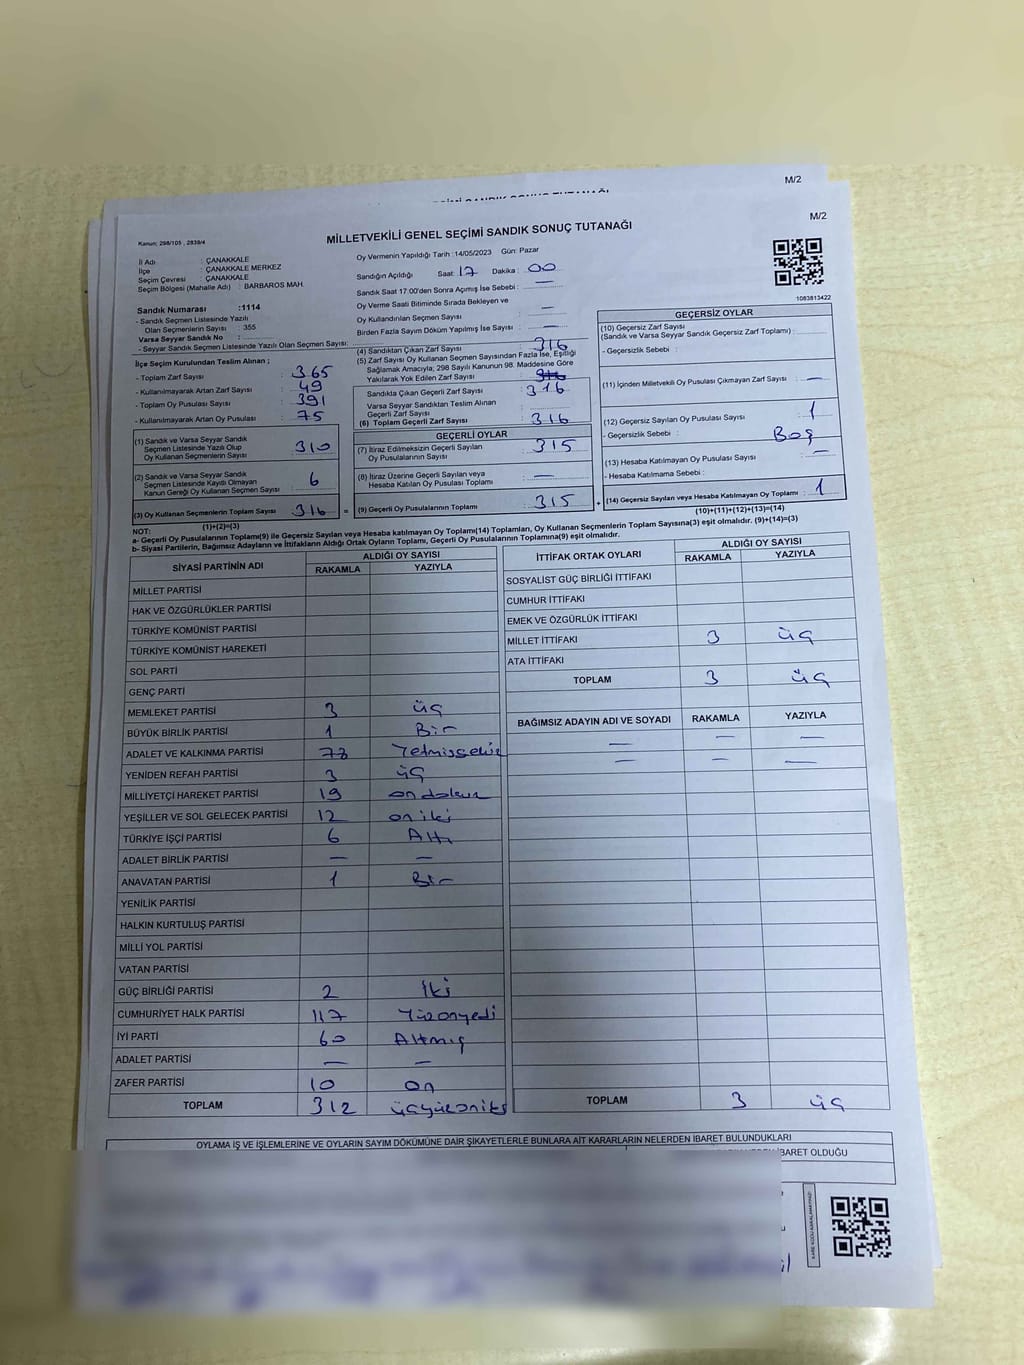 M/2
M/2
Kanun; 298/105 , 2839/4
MİLLETVEKİLİ GENEL SEÇİMİ SANDIK SONUÇ TUTANAĞI
İl Adı : ÇANAKKALE
İlçe : ÇANAKKALE MERKEZ
Seçim Çevresi : ÇANAKKALE
Seçim Bölgesi (Mahalle Adı) : BARBAROS MAH.
Oy Vermenin Yapıldığı Tarih :14/05/2023 Gün: Pazar
Sandığın Açıldığı Saat: 17 Dakika : 00
Sandık Saat 17:00'den Sonra Açımış İse Sebebi : —
Oy Verme Saati Bitiminde Sırada Bekleyen ve
Oy Kullandırılan Seçmen Sayısı : —
Birden Fazla Sayım Döküm Yapılmış İse Sayısı : —
1083813422
Sandık Numarası :1114
- Sandık Seçmen Listesinde Yazılı
Olan Seçmenlerin Sayısı : 355
Varsa Seyyar Sandık No :
- Seyyar Sandık Seçmen Listesinde Yazılı Olan Seçmen Sayısı:
İlçe Seçim Kurulundan Teslim Alınan ;
- Toplam Zarf Sayısı : 365
- Kullanılmayarak Artan Zarf Sayısı : 49
- Toplam Oy Pusulası Sayısı : 391
- Kullanılmayarak Artan Oy Pusulası : 75
(1) Sandık ve Varsa Seyyar Sandık
Seçmen Listesinde Yazılı Olup
Oy Kullanan Seçmenlerin Sayısı : 310
(2) Sandık ve Varsa Seyyar Sandık
Seçmen Listesinde Kaydı Olmayan
Kanun Gereği Oy Kullanan Seçmen Sayısı : 6
(3) Oy Kullanan Seçmenlerin Toplam Sayısı : 316
(1)+(2)=(3)
(4) Sandıktan Çıkan Zarf Sayısı : 316
(5) Zarf Sayısı Oy Kullanan Seçmen Sayısından Fazla İse, Eşitliği
Sağlamak Amacıyla; 298 Sayılı Kanunun 98. Maddesine Göre
Yakılarak Yok Edilen Zarf Sayısı :
Sandıkta Çıkan Geçerli Zarf Sayısı : 316
Varsa Seyyar Sandıktan Teslim Alınan
Geçerli Zarf Sayısı :
(6) Toplam Geçerli Zarf Sayısı : 316
GEÇERLİ OYLAR
(7) İtiraz Edilmeksizin Geçerli Sayılan
Oy Pusulalarının Sayısı : 315
(8) İtiraz Üzerine Geçerli Sayılan veya
Hesaba Katılan Oy Pusulası Toplamı : —
= (9) Geçerli Oy Pusulalarının Toplamı : 315 +
GEÇERSİZ OYLAR
(10) Geçersiz Zarf Sayısı
(Sandık ve Varsa Seyyar Sandık Geçersiz Zarf Toplamı) :
- Geçersizlik Sebebi :
(11) İçinden Milletvekili Oy Pusulası Çıkmayan Zarf Sayısı : —
(12) Geçersiz Sayılan Oy Pusulası Sayısı : 1
- Geçersizlik Sebebi : Boş
(13) Hesaba Katılmayan Oy Pusulası Sayısı : —
- Hesaba Katılmama Sebebi :
(14) Geçersiz Sayılan veya Hesaba Katılmayan Oy Toplamı : 1
(10)+(11)+(12)+(13)=(14)
NOT:
a- Geçerli Oy Pusulalarının Toplamı(9) ile Geçersiz Sayılan veya Hesaba katılmayan Oy Toplamı(14) Toplamları, Oy Kullanan Seçmenlerin Toplam Sayısına(3) eşit olmalıdır. (9)+(14)=(3)
b- Siyasi Partilerin, Bağımsız Adayların ve İttifakların Aldığı Ortak Oyların Toplamı, Geçerli Oy Pusulalarının Toplamına(9) eşit olmalıdır.
SİYASİ PARTİNİN ADI ALDIĞI OY SAYISI
RAKAMLA YAZIYLA
MİLLET PARTİSİ
HAK VE ÖZGÜRLÜKLER PARTİSİ
TÜRKİYE KOMÜNİST PARTİSİ
TÜRKİYE KOMÜNİST HAREKETİ
SOL PARTİ
GENÇ PARTİ
MEMLEKET PARTİSİ 3 üç
BÜYÜK BİRLİK PARTİSİ 1 Bir
ADALET VE KALKINMA PARTİSİ 78 Yetmişsekiz
YENİDEN REFAH PARTİSİ 3 üç
MİLLİYETÇİ HAREKET PARTİSİ 19 on dokuz
YEŞİLLER VE SOL GELECEK PARTİSİ 12 oniki
TÜRKİYE İŞÇİ PARTİSİ 6 Altı
ADALET BİRLİK PARTİSİ — —
ANAVATAN PARTİSİ 1 Bir
YENİLİK PARTİSİ
HALKIN KURTULUŞ PARTİSİ
MİLLİ YOL PARTİSİ
VATAN PARTİSİ
GÜÇ BİRLİĞİ PARTİSİ 2 İki
CUMHURİYET HALK PARTİSİ 117 Yüzonyedi
İYİ PARTİ 60 Altmış
ADALET PARTİSİ — —
ZAFER PARTİSİ 10 on
TOPLAM 312 üçyüzoniki
İTTİFAK ORTAK OYLARI ALDIĞI OY SAYISI
RAKAMLA YAZIYLA
SOSYALİST GÜÇ BİRLİĞİ İTTİFAKI
CUMHUR İTTİFAKI
EMEK VE ÖZGÜRLÜK İTTİFAKI
MİLLET İTTİFAKI 3 üç
ATA İTTİFAKI
TOPLAM 3 üç
BAĞIMSIZ ADAYIN ADI VE SOYADI RAKAMLA YAZIYLA
— — —
— — —
TOPLAM 3 üç
OYLAMA İŞ VE İŞLEMLERİNE VE OYLARIN SAYIM DÖKÜMÜNE DAİR ŞİKAYETLERLE BUNLARA AİT KARARLARIN NELERDEN İBARET BULUNDUKLARI
İBARET OLDUĞU